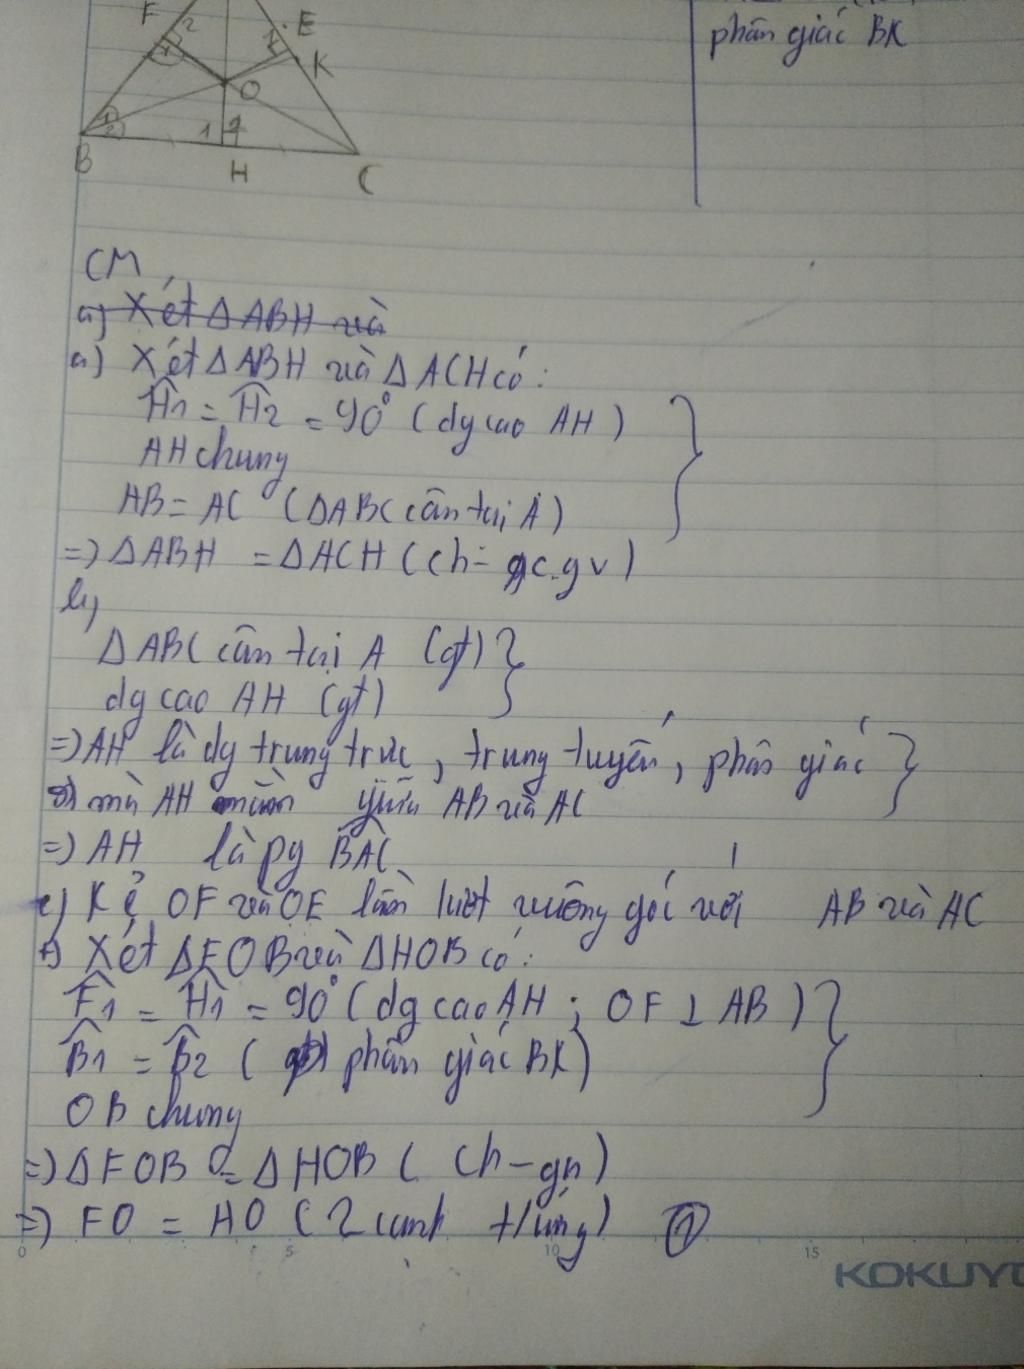 phân giác BK
F 2 E
1 1 K
O
1
2 1 2
B H C
CM
a) Xét ΔABH và
a) Xét ΔABH và ΔACH có:
Ĥ1 = Ĥ2 = 90° (dg cao AH)
AH chung
AB = AC (ΔABC cân tại A)
=) ΔABH = ΔACH (ch - gc.gv)
b)
ΔABC cân tại A (gt)
dg cao AH (gt)
=) AH là dg trung trực, trung tuyến, phân giác
mà AH giữa AB và AC
=) AH là pg BÂC
c) Kẻ OF và OE lần lượt vuông góc với AB và AC
+) Xét ΔFOB và ΔHOB có:
F̂1 = Ĥ1 = 90° (dg cao AH ; OF ⊥ AB)
B̂1 = B̂2 ( phân giác BK)
OB chung
=) ΔFOB = ΔHOB ( Ch - gn)
=) FO = HO (2 cạnh t/ứng) ①
0 5 10 15
KOKUYO